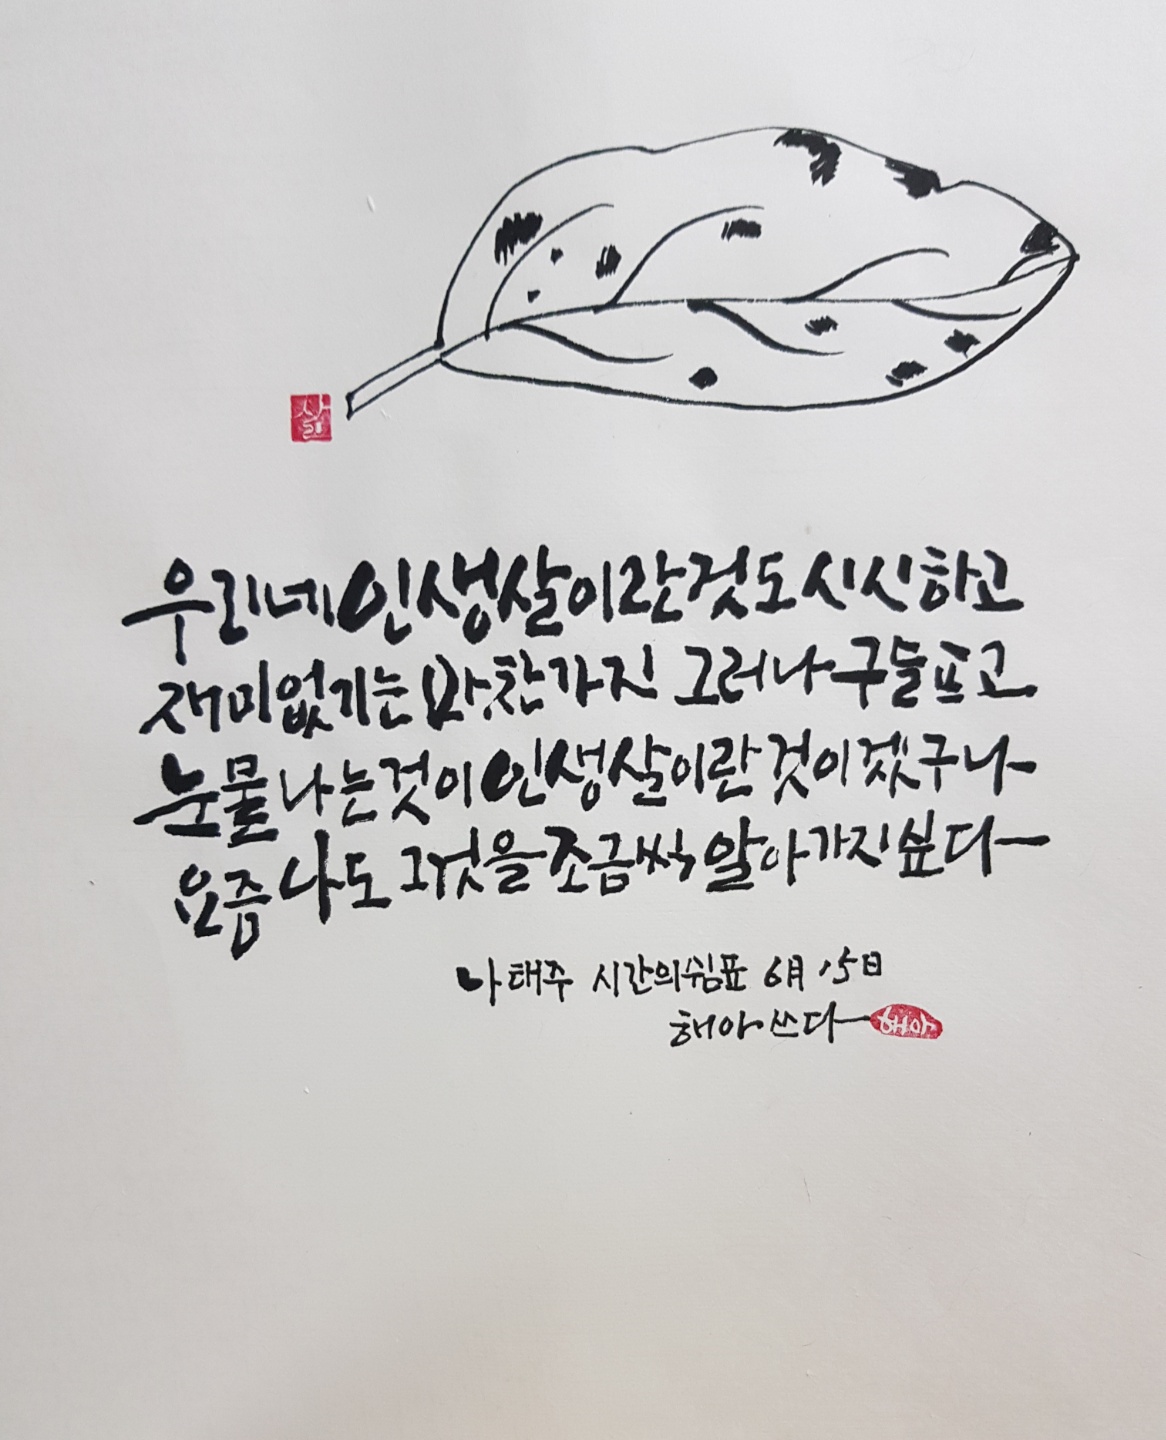 삶
우리네 인생살이란 것도 시시하고
재미없기는 마찬가지 그러나 구슬프고
눈물 나는 것이 인생살이란 것이겠구나
요즘 나도 그것을 조금씩 알아가지 싶다
나태주 시간의쉼표 6月 15日
해아 쓰다 해아